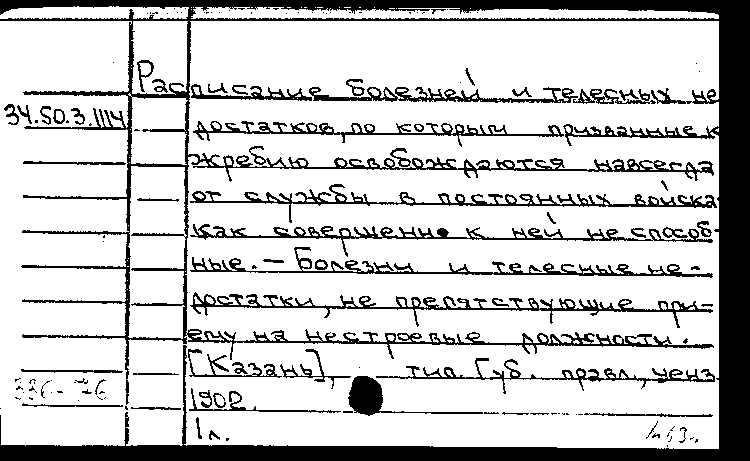 Расписание болезней и телесных не
34.50.3.1114
достатков, по которым призванные к
жребию освобождаются навсегда
от службы в постоянных войска
как совершенно к ней не способ-
ные. – Болезни и телесные не-
достатки, не препятствующие при-
ему на нестроевые должности.
[Казань], тип. Губ. правл., ценз
336-76
1902.
1 л.